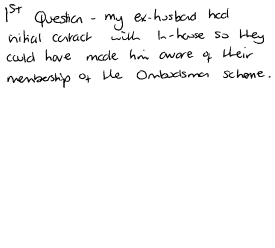 1st Question - my ex-husband had
initial contact with In-house so they
could have made him aware of their
membership of the Ombudsman scheme.